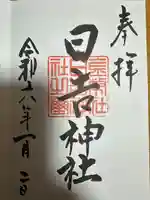 奉拝
日吉神社
令和六年一月二日